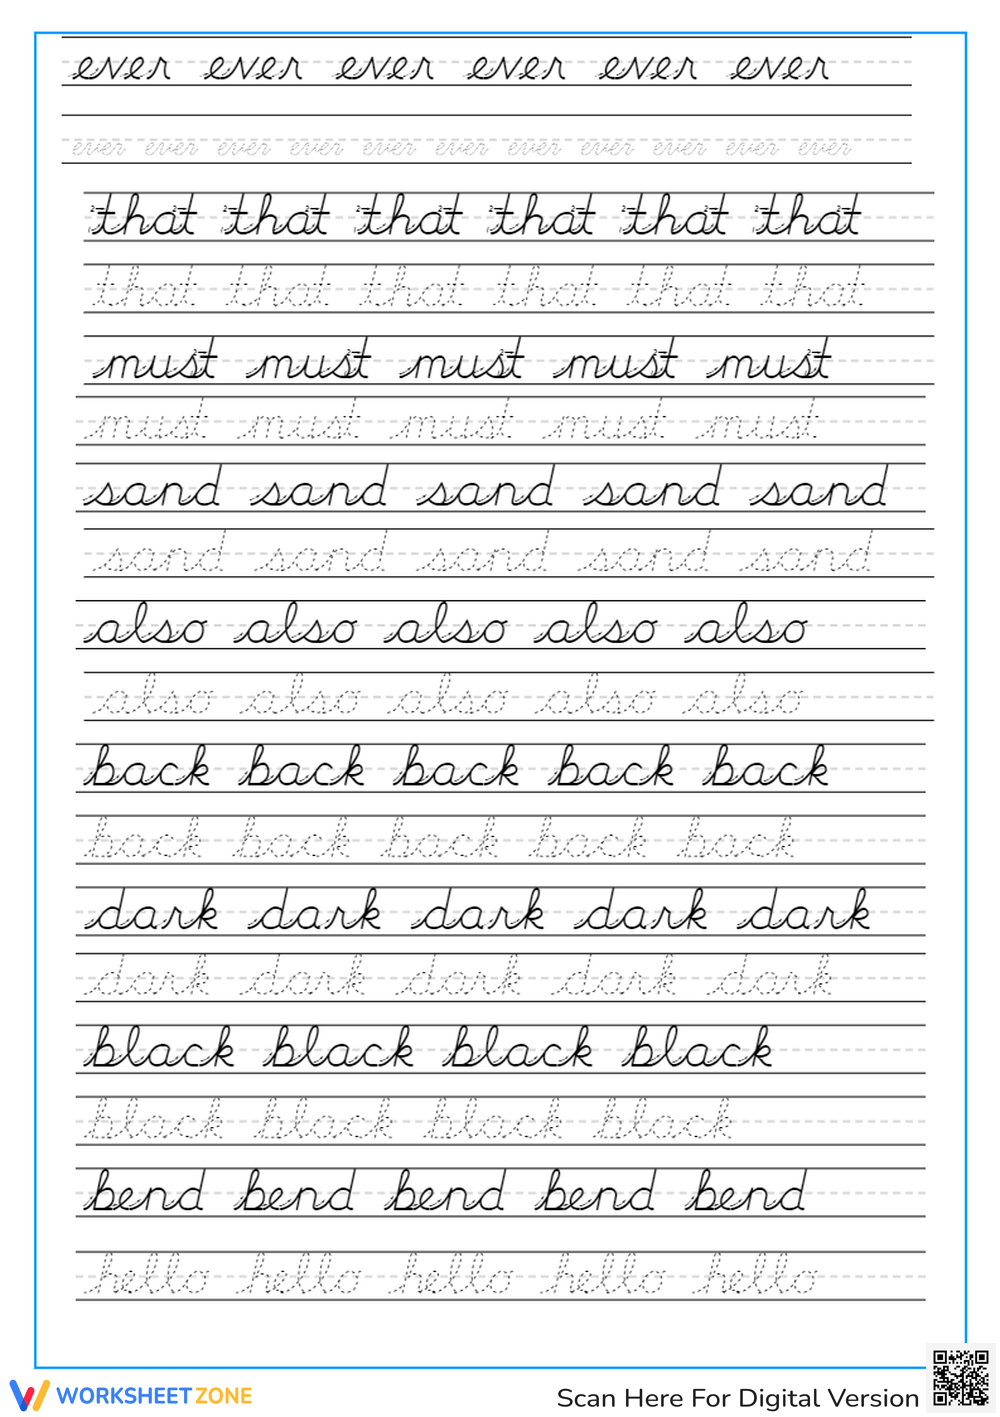 ever ever ever ever ever ever
ever ever ever ever ever ever ever ever ever ever ever
that that that that that that
that that that that that that
must must must must must
must must must must must
sand sand sand sand sand
sand sand sand sand sand
also also also also also
also also also also also
back back back back back
back back back back back
dark dark dark dark dark
dark dark dark dark dark
black black black black
black black black black
bend bend bend bend bend
hello hello hello hello hello
WORKSHEETZONE
Scan Here For Digital Version